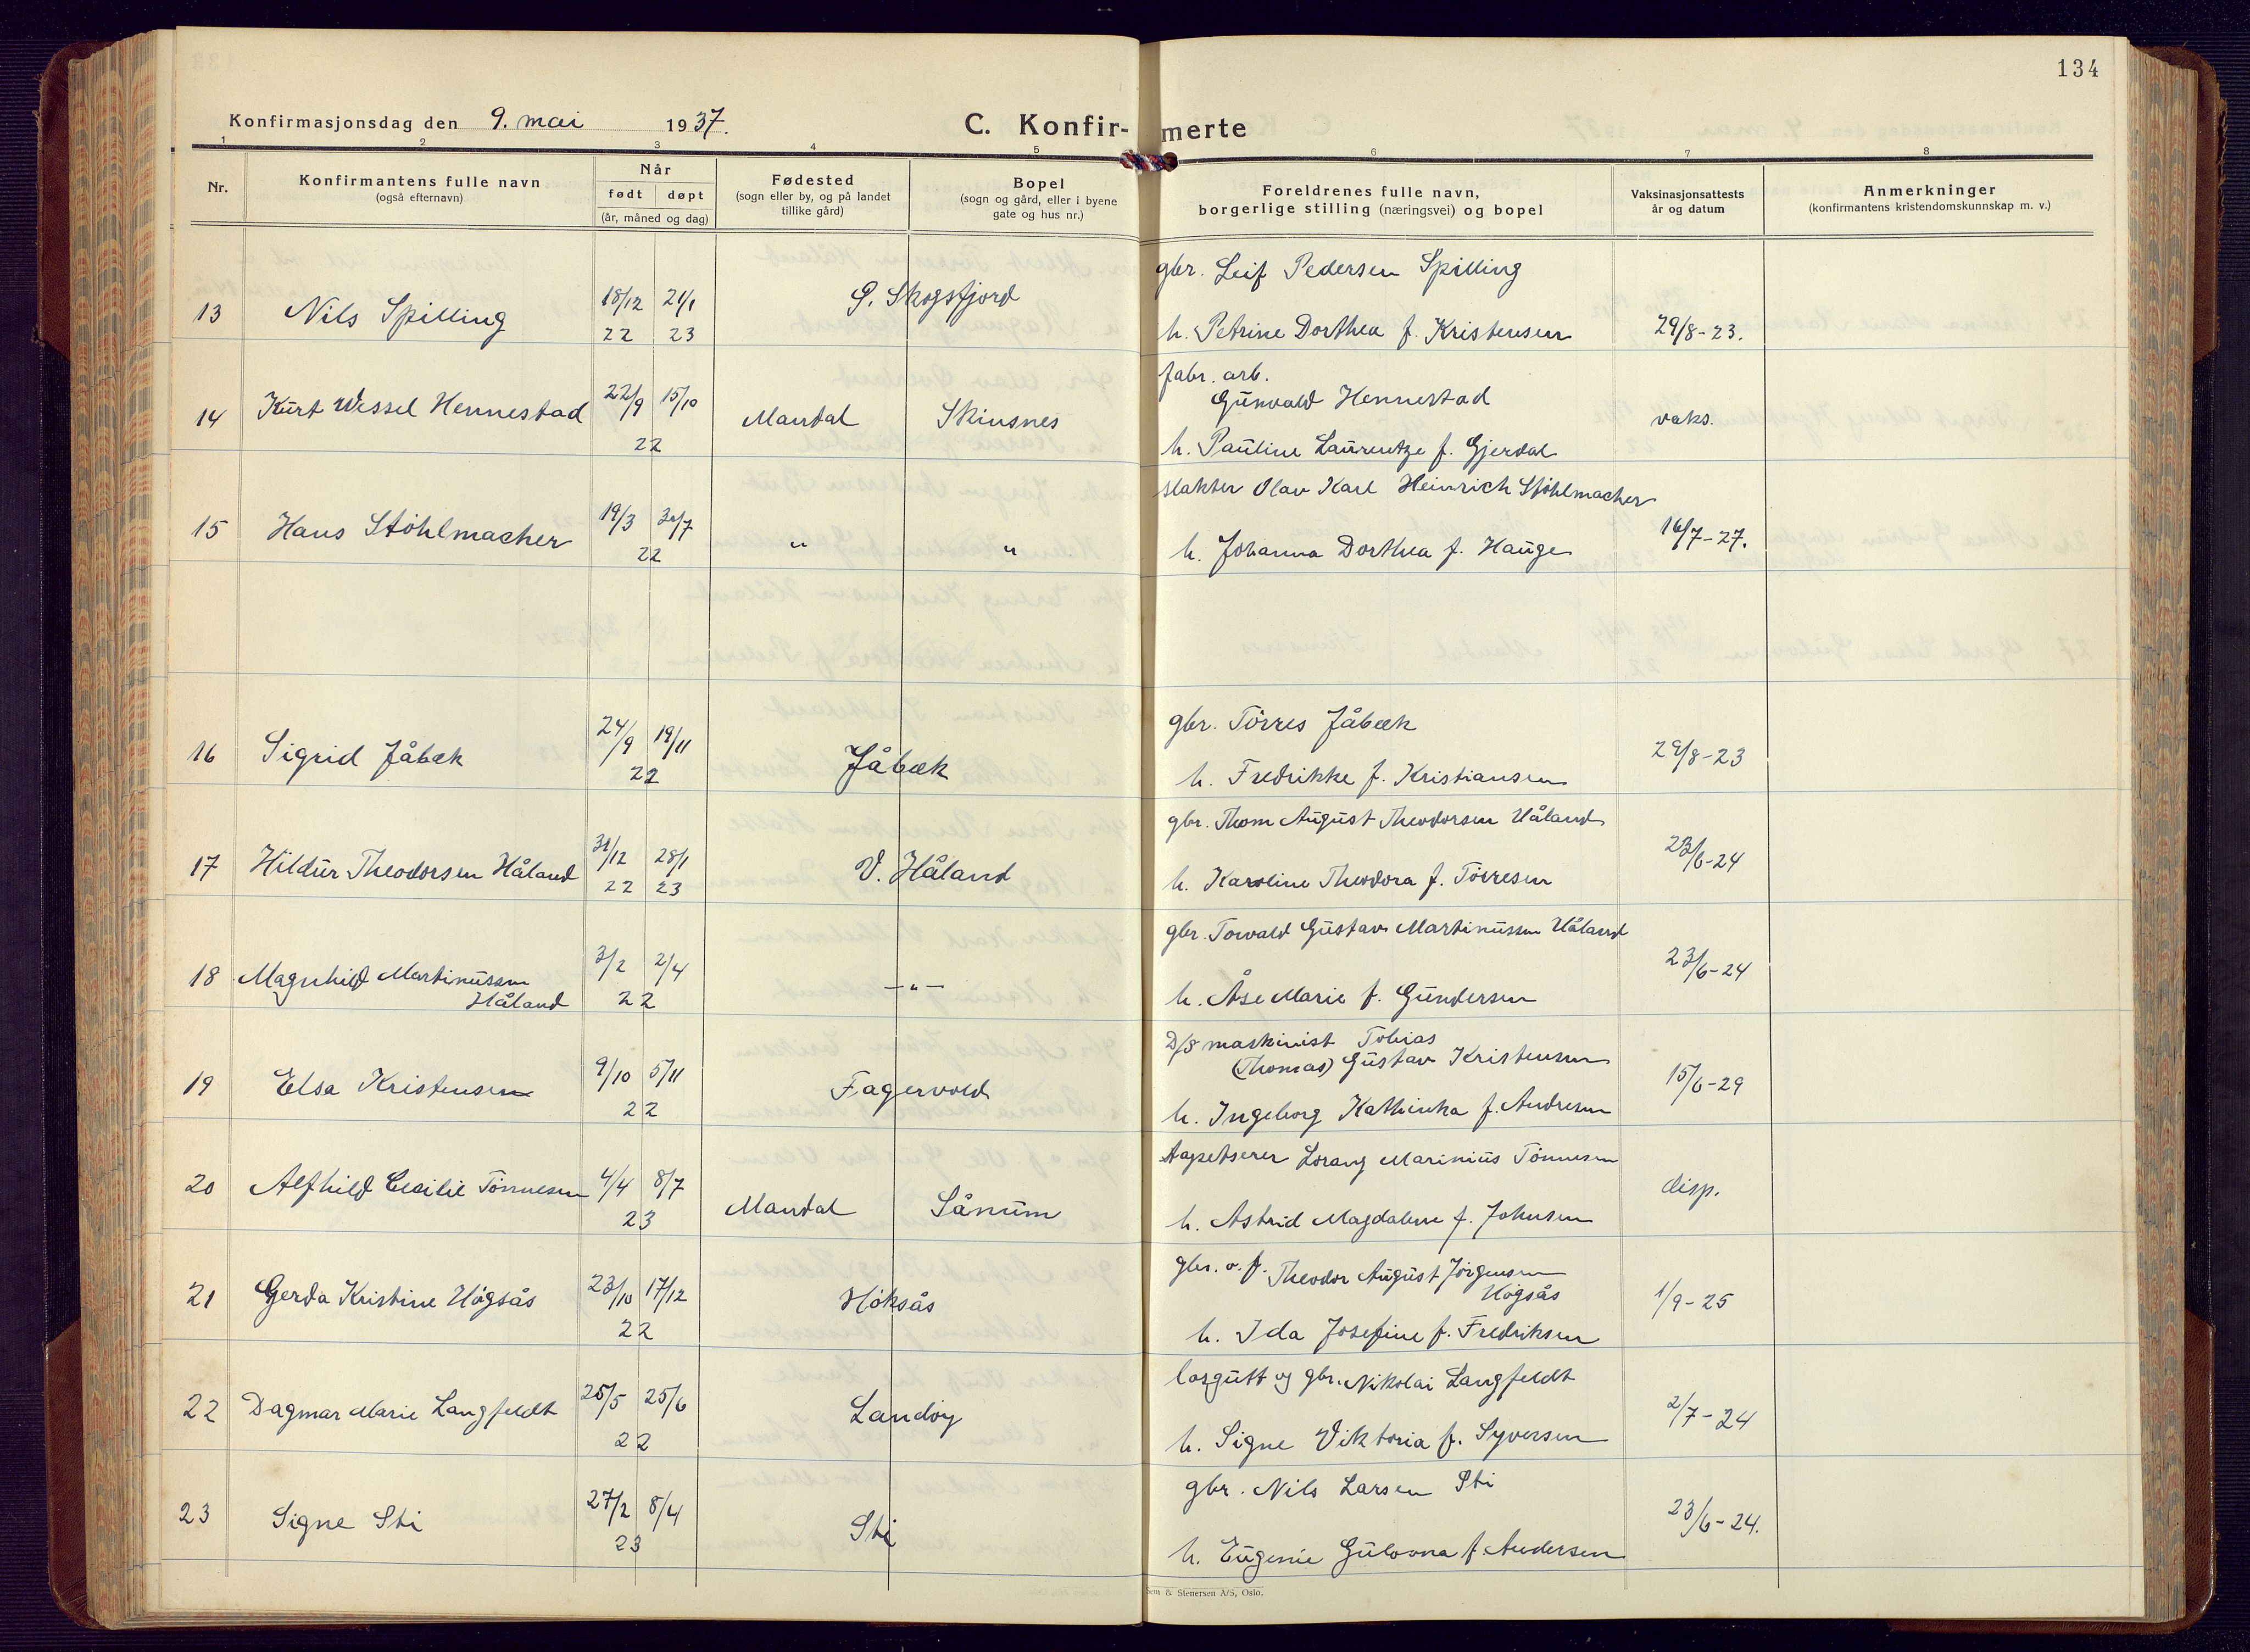 134
Konfirmasjonsdag den 9. mai 1937.
C. Konfirmerte
1 2 3 4 5 6 7 8
Nr.
Konfirmantens fulle navn
(også efternavn)
Når
født døpt
(år, måned og dag)
Fødested
(sogn eller by, og på landet
tillike gård)
Bopel
(sogn og gård, eller i byene
gate og hus nr.)
Foreldrenes fulle navn,
borgerlige stilling (næringsvei) og bopel
Vaksinasjonsattests
år og datum
Anmerkninger
(konfirmantens kristendomskunnskap m. v.)
gbr. Leif Pedersen Spilling
13 Nils Spilling 18/12 22 21/1 23 G. Skogsfjord
h. Petrine Dorthea f. Kristensen 29/8-23.
fabr. arb.
Gunvald Hennestad
14 Kurt Wessel Hennestad 22/9 15/10 22 Mandal Skinsnes vaks.
h. Pauline Laurentze f. Gjerdal
slakter Olav Karl Heinrich Støhlmacher
15 Hans Støhlmacher 19/3 30/7 22 " "
h. Johanna Dorthea f. Hauge 16/7-27.
gbr. Tørres Jåbæk
16 Sigrid Jåbæk 24/9 19/11 22 Jåbæk 29/8-23
h. Fredrikke f. Kristiansen
gbr. Thom August Theodorsen Håland
17 Hildur Theodorsen Håland 31/12 22 28/1 23 V. Håland 23/6-24
h. Karoline Theodora f. Tørresen
gbr. Torvald Gustav Martinussen Håland
18 Magnhild Martinussen
Håland 3/2 2/4 22 -"- 23/6-24
h. Åse Marie f. Gundersen
D/S maskinist Tobias
(Thomas) Gustav Kristensen
19 Elsa Kristensen 9/10 5/11 22 Fagervold 15/6-29
h. Ingeborg Kathinka f. Andresen
tapetserer Lorang Marinius Tønnesen
20 Alfhild Cecilie Tønnesen 4/4 8/7 23 Mandal Sånum disp.
h. Astrid Magdalene f. Johnsen
gbr. o. f. Theodor August Jørgensen
Høgsås
21 Gerda Kristine Høgsås 23/10 17/12 22 Høksås 1/9-25
h. Ida Josefine f. Fredriksen
losgutt og gbr. Nikolai Langfeldt
22 Dagmar Marie Langfeldt 25/5 25/6 22 Landøy 2/7-24
h. Signe Viktoria f. Syversen
gbr. Nils Larsen Sti
23 Signe Sti 27/2 8/4 23 Sti 23/6-24.
h. Eugenie Gulovna f. Andersen
Sem & Stenersen A/S, Oslo.